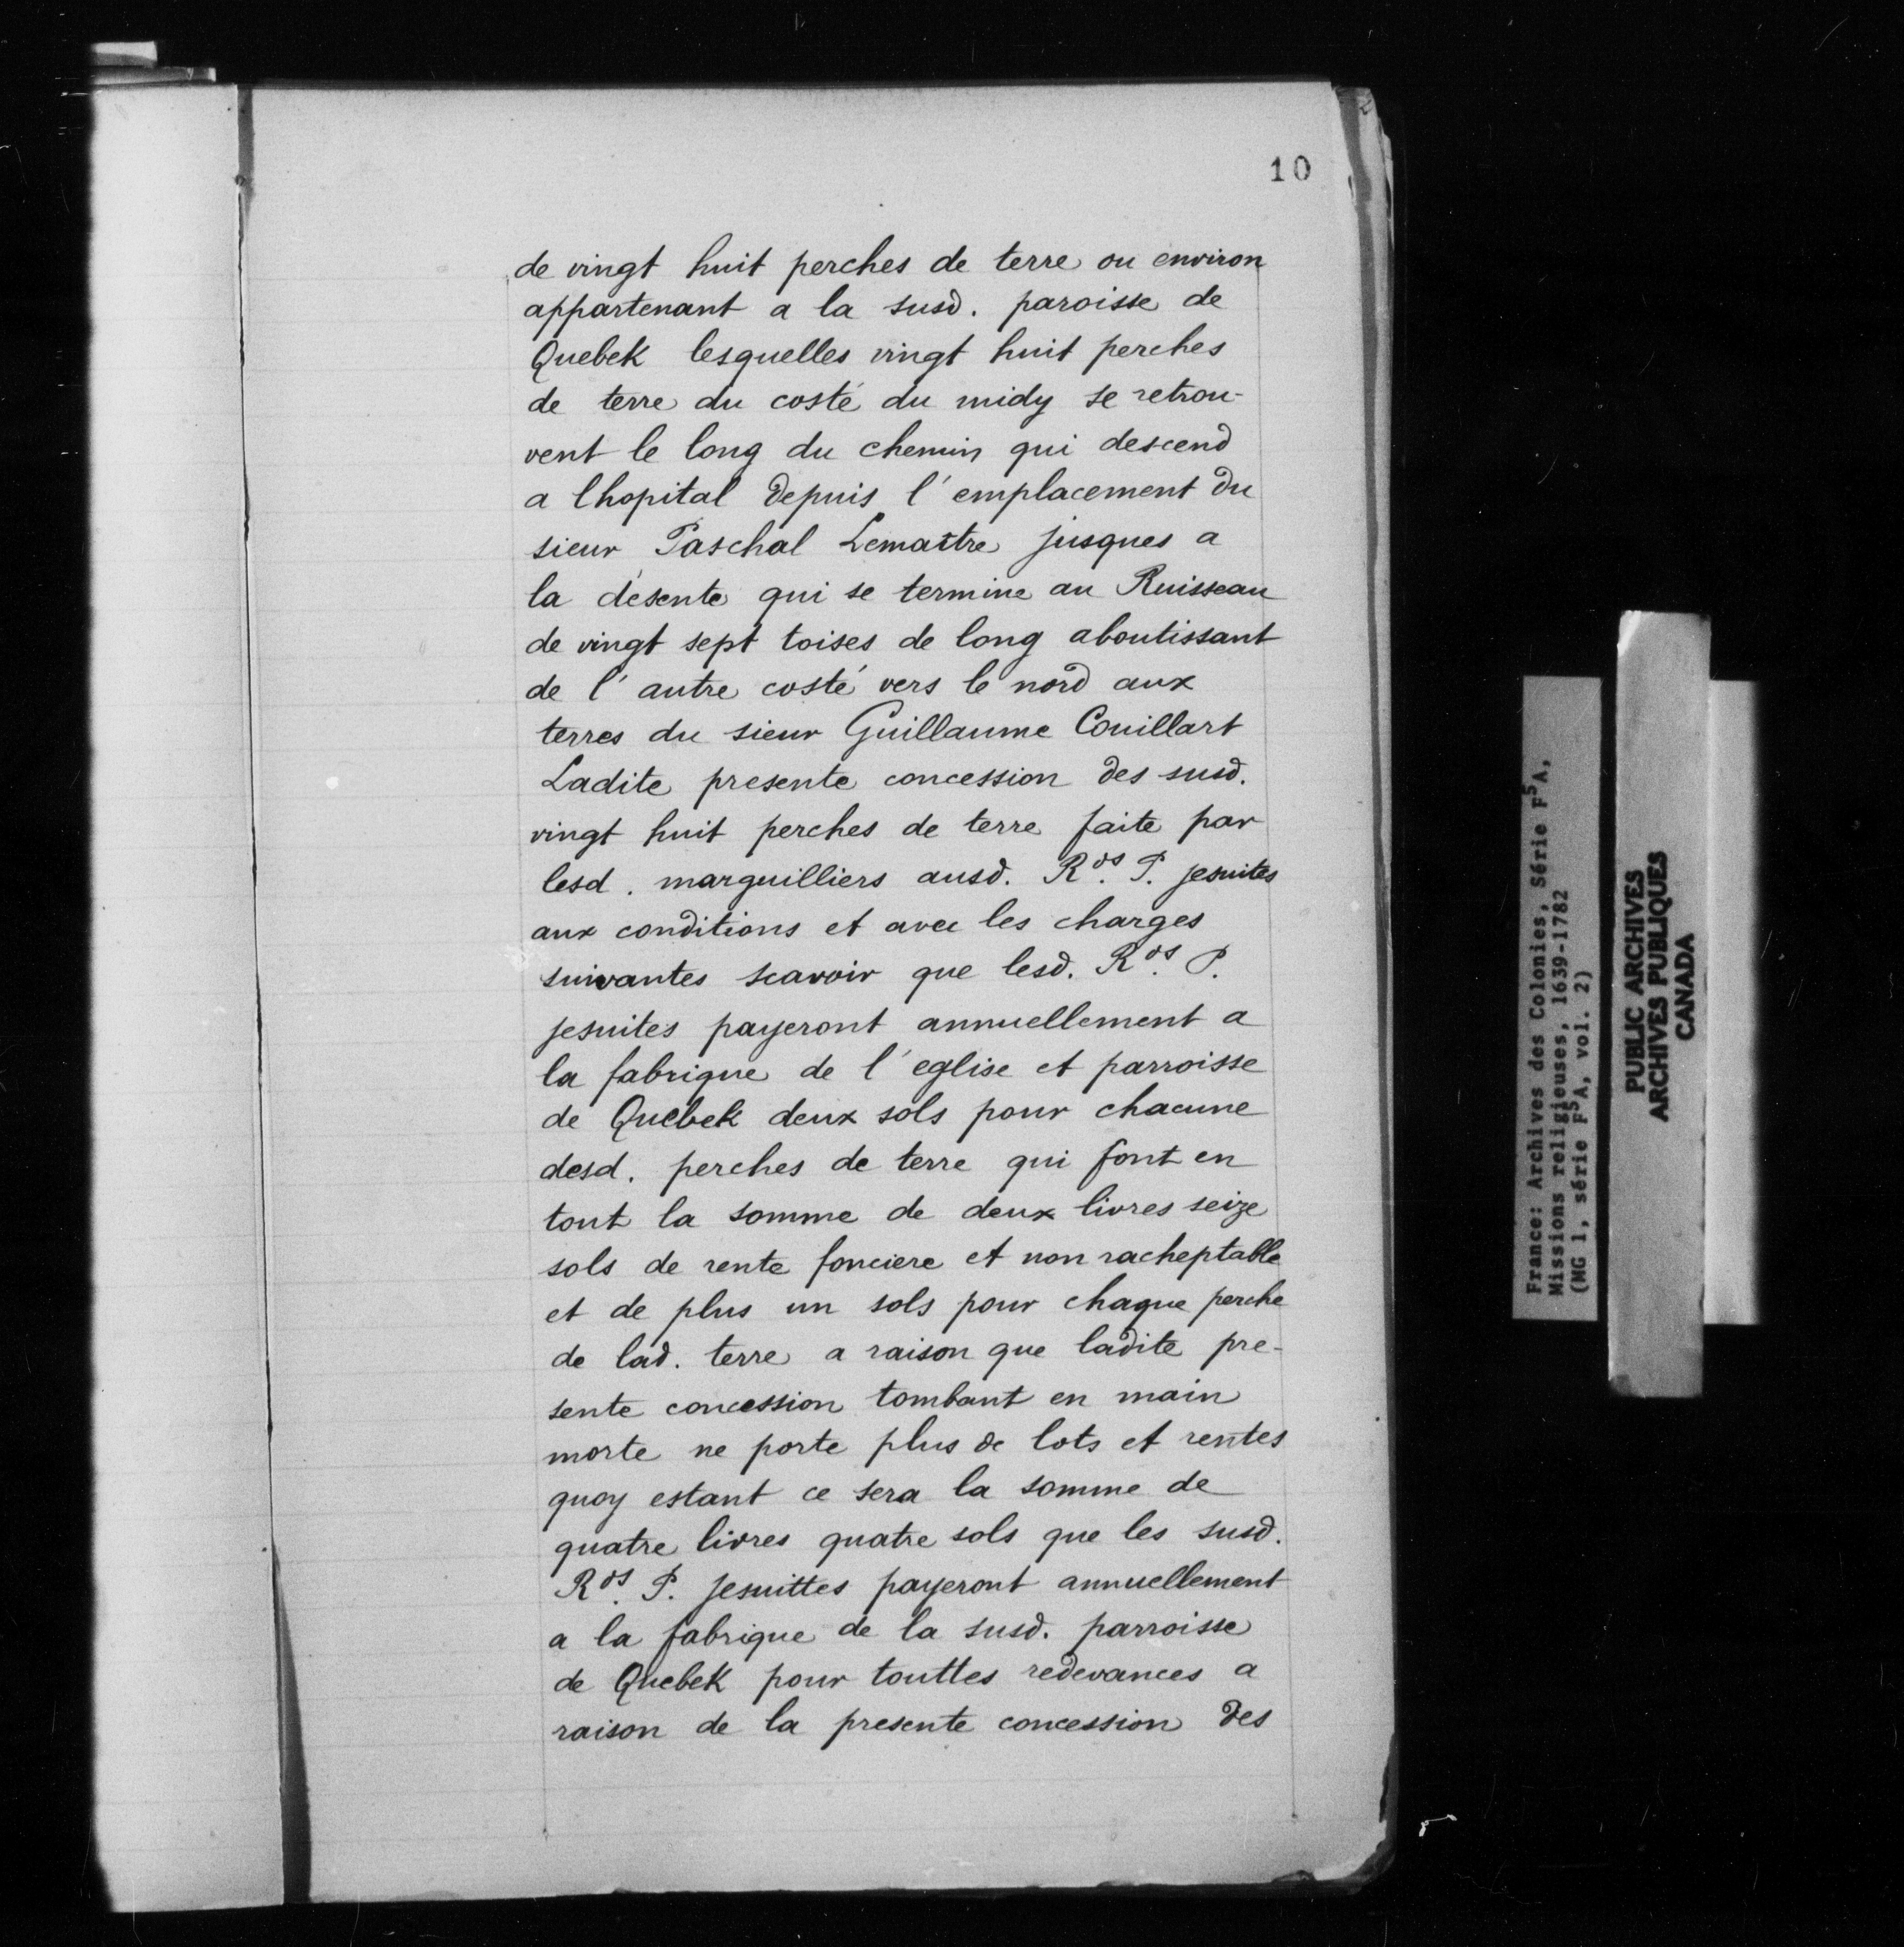 10
de vingt huit perches de terre ou environ
appartenant a la susd. paroisse de
Quebek lesquelles vingt huit perches
de terre du costé du midy se retrou-
vent le long du chemin qui descend
a lhopital depuis l'emplacement du
sieur Paschal Lemaître jusques a
la désente qui se termine au Ruisseau
de vingt sept toises de long aboutissant
de l'autre costé vers le nord aux
terres du sieur Guillaume Couillart
Ladite presente concession des susd.
vingt huit perches de terre faite par
lesd. marguilliers ausd. Rds. P. jesuites
aux conditions et avec les charges
suivantes scavoir que lesd. Rds. P.
jesuites payeront annuellement a
la fabrique de l'eglise et parroisse
de Quebek deux sols pour chacune
desd. perches de terre qui font en
tout la somme de deux livres seize
sols de rente fonciere et non racheptable
et de plus un sols pour chaque perche
de lad. terre a raison que ladite pre-
sente concession tombant en main
morte ne porte plus de lots et rentes
quoy estant ce sera la somme de
quatre livres quatre sols que les susd.
Rds. P. Jesuittes payeront annuellement
a la fabrique de la susd. parroisse
de Quebek pour touttes redevances a
raison de la presente concession des
France: Archives des Colonies, Série F5A,
Missions religieuses, 1639-1782
(MG 1, série F5A, vol. 2)
PUBLIC ARCHIVES
ARCHIVES PUBLIQUES
CANADA